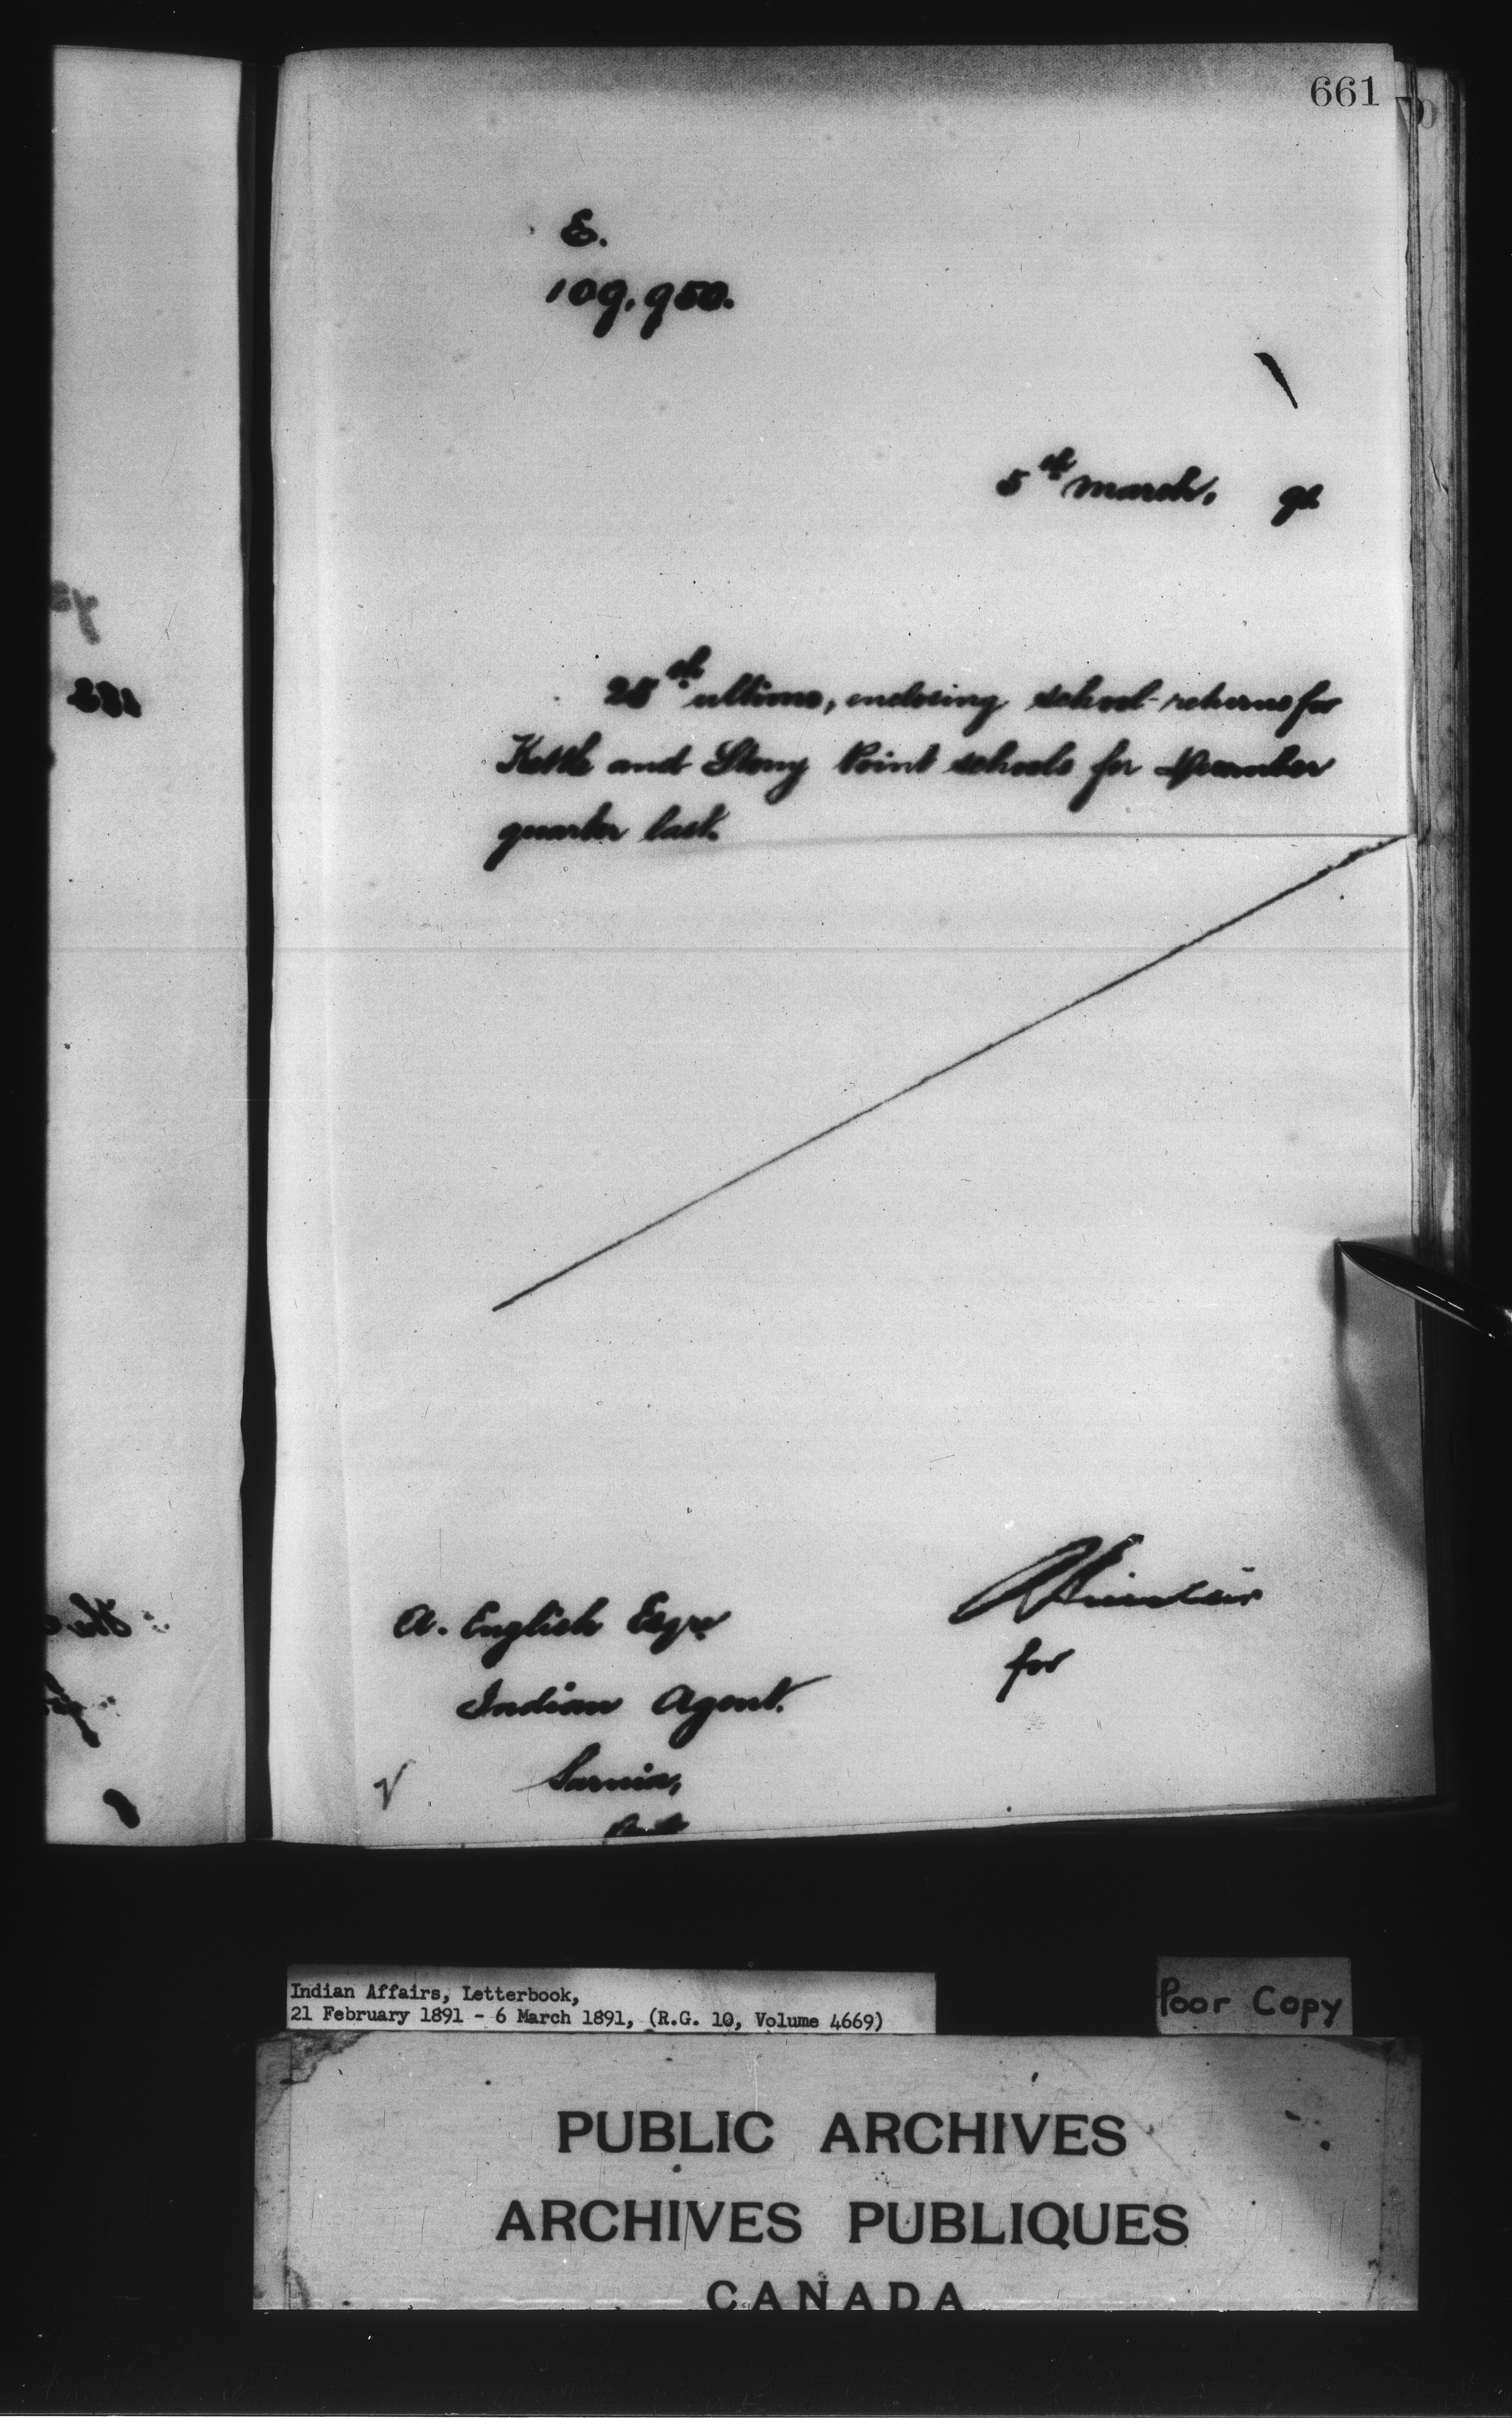 661
E.
109,950.
5th March, 91
25th ultimo, enclosing school-returns for
Kettle and Stony Point schools for December
quarter last.
A. English Esqre
for
Indian Agent.
Sarnia,
Ont
Indian Affairs, Letterbook,
21 February 1891 - 6 March 1891, (R.G. 10, Volume 4669)
Poor Copy
PUBLIC ARCHIVES
ARCHIVES PUBLIQUES
CANADA